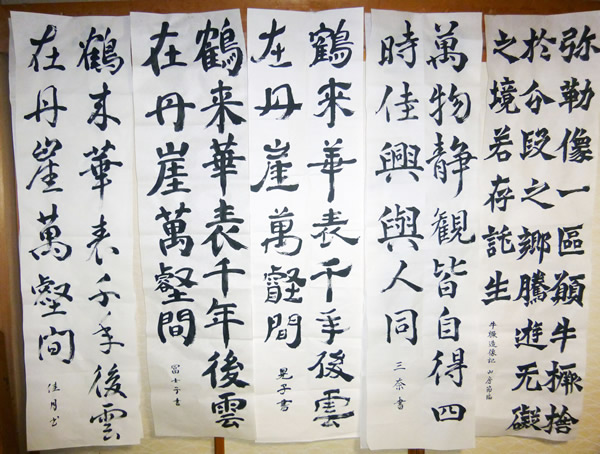 弥勒像一區願牛橛捨
於分段之郷騰遊无礙
之境若存託生
牛橛造像記
萬物静観皆自得四
時佳興與人同
三奈書
鶴来華表千年後雲
在丹崖萬壑間
晃子書
鶴来華表千年後雲
在丹崖萬壑間
鶴来華表千年後雲
在丹崖萬壑間
佳月書